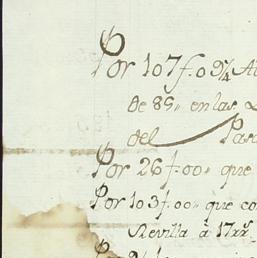 Por 107f. 09¼ Al
de 89.. en las
del Pas
Por 26f.. 00.. que
Por 103f. 00.. que co
Sevilla á 17